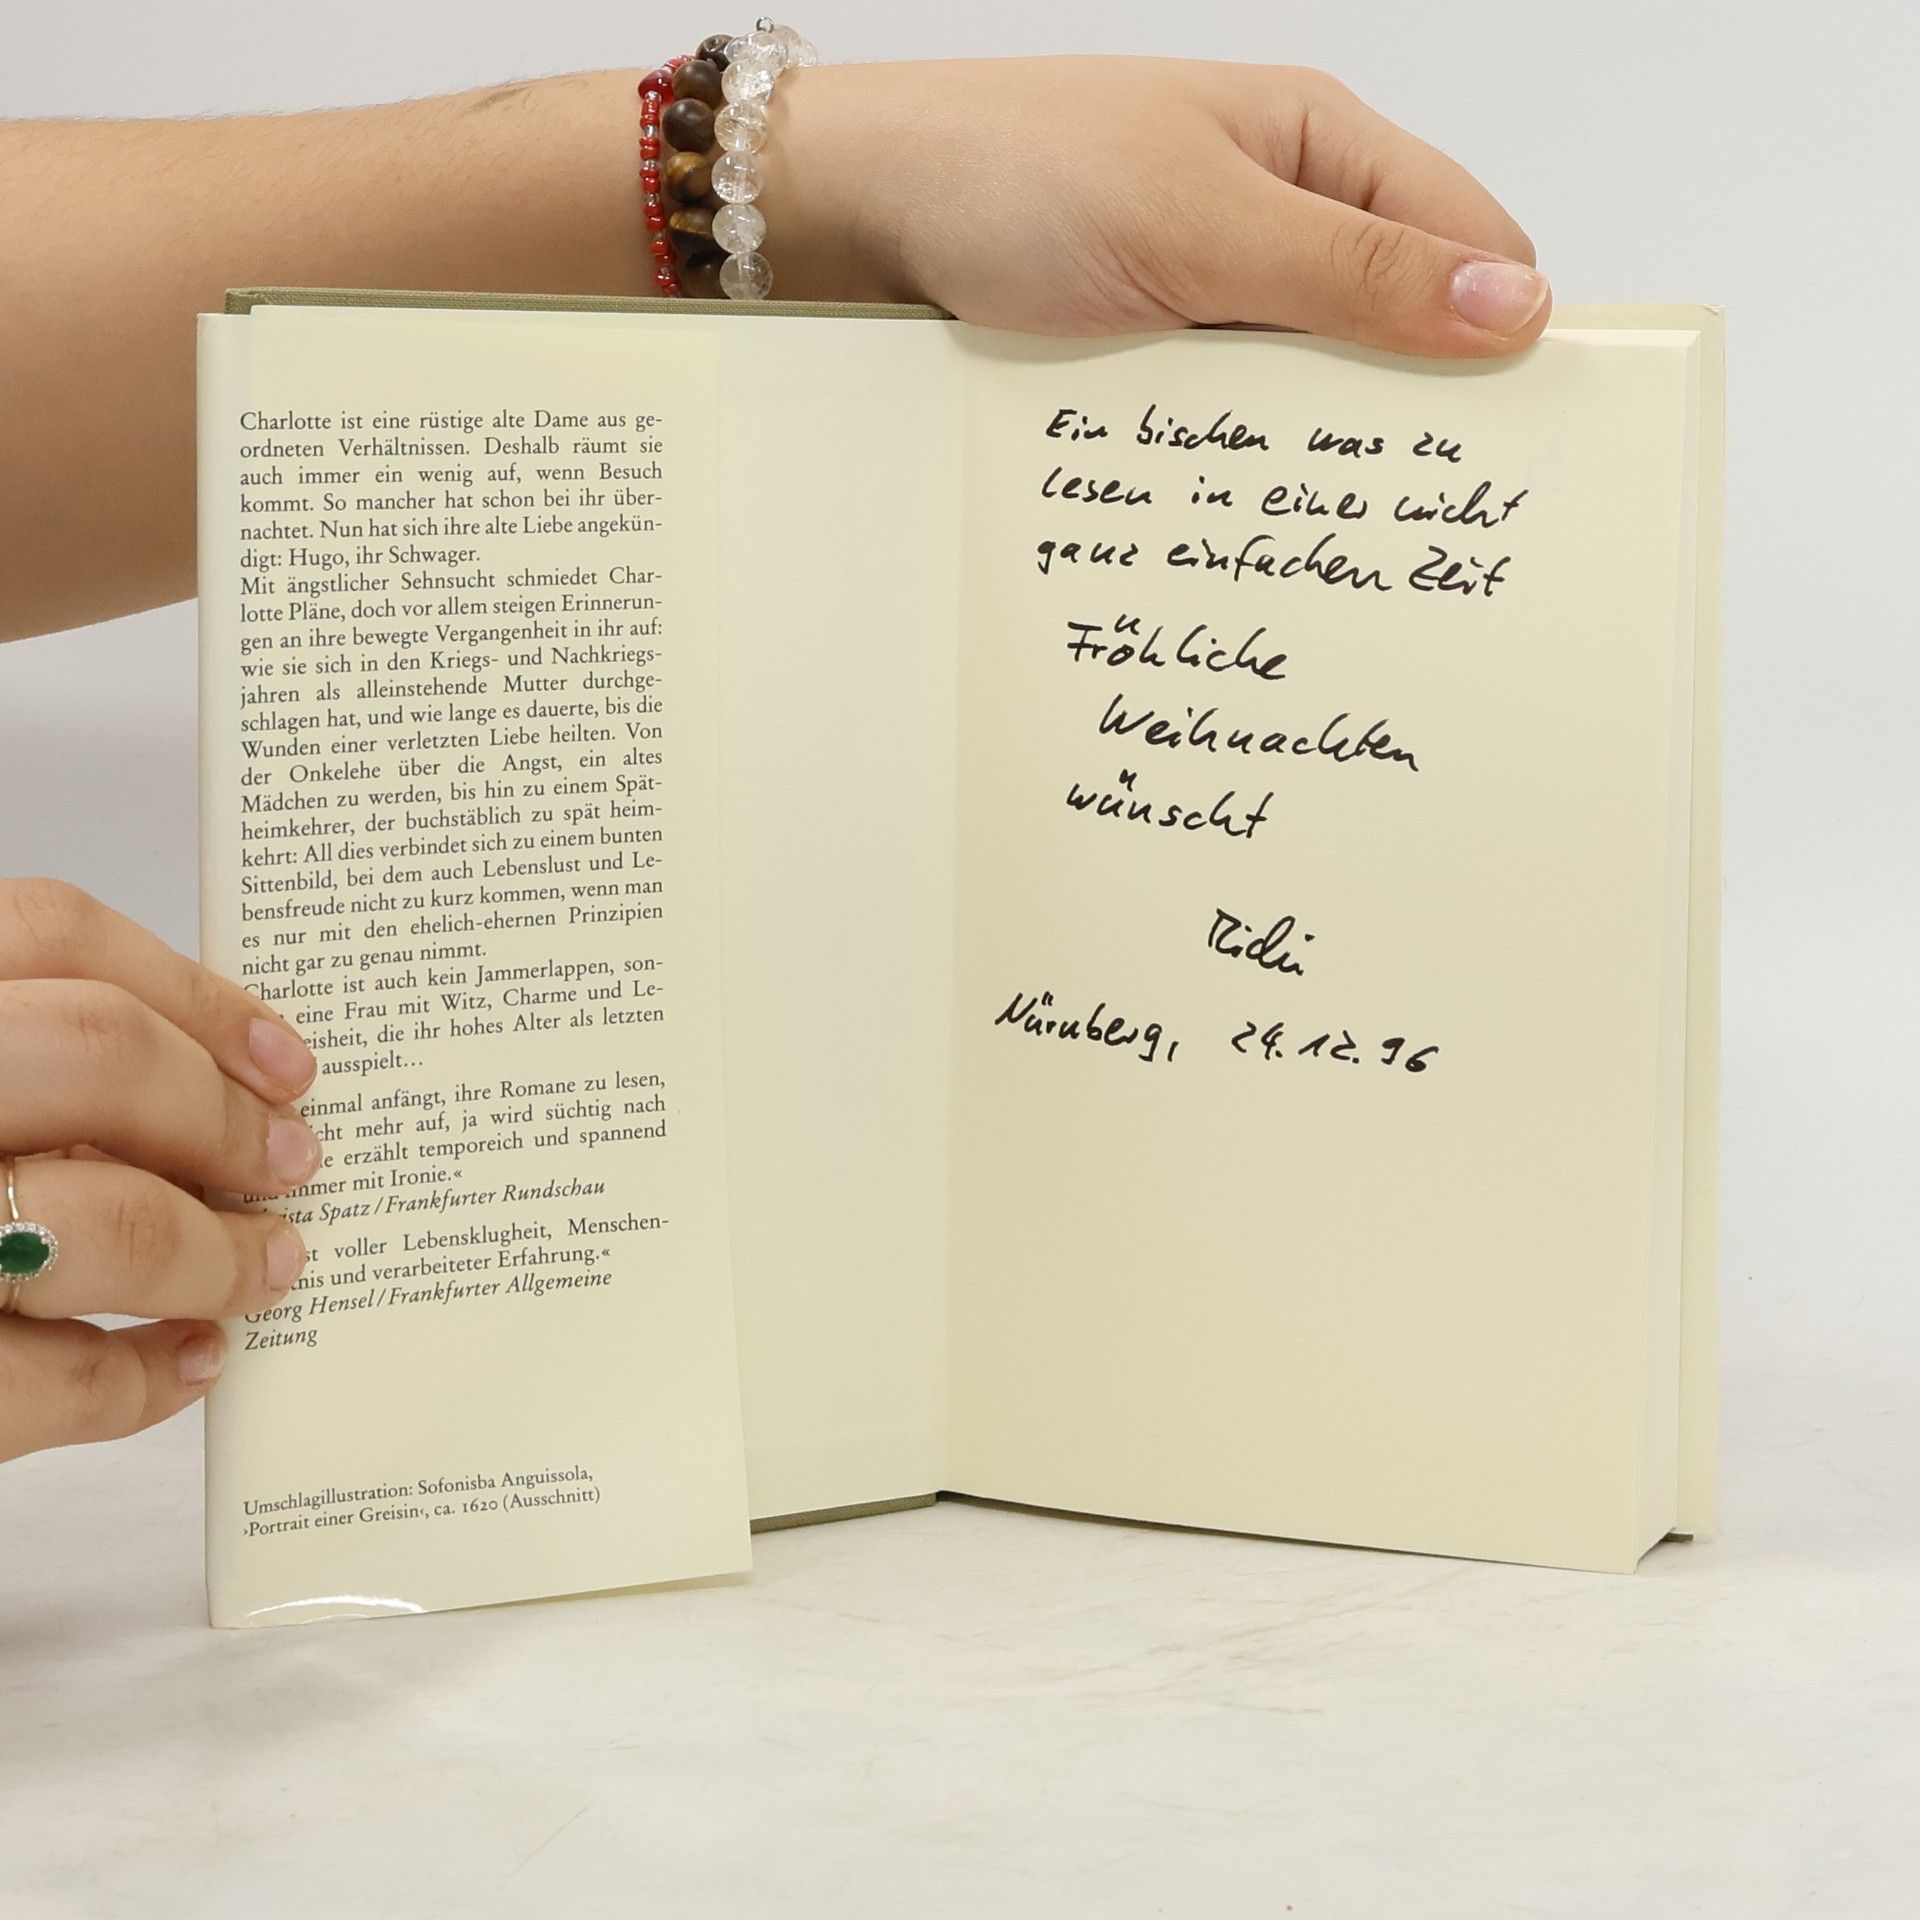 Charlotte ist eine rüstige alte Dame aus ge-
ordneten Verhältnissen. Deshalb räumt sie
auch immer ein wenig auf, wenn Besuch
kommt. So mancher hat schon bei ihr über-
nachtet. Nun hat sich ihre alte Liebe angekün-
digt: Hugo, ihr Schwager.
Mit ängstlicher Sehnsucht schmiedet Char-
lotte Pläne, doch vor allem steigen Erinnerun-
gen an ihre bewegte Vergangenheit in ihr auf:
wie sie sich in den Kriegs- und Nachkriegs-
jahren als alleinstehende Mutter durchge-
schlagen hat, und wie lange es dauerte, bis die
Wunden einer verletzten Liebe heilten. Von
der Onkelehe über die Angst, ein altes
Mädchen zu werden, bis hin zu einem Spät-
heimkehrer, der buchstäblich zu spät heim-
kehrt: All dies verbindet sich zu einem bunten
Sittenbild, bei dem auch Lebenslust und Le-
bensfreude nicht zu kurz kommen, wenn man
es nur mit den ehelich-ehernen Prinzipien
nicht gar zu genau nimmt.
Charlotte ist auch kein Jammerlappen, son-
eine Frau mit Witz, Charme und Le-
eisheit, die ihr hohes Alter als letzten
ausspielt...
einmal anfängt, ihre Romane zu lesen,
cht mehr auf, ja wird süchtig nach
erzählt temporeich und spannend
und immer mit Ironie.«
ista Spatz/Frankfurter Rundschau
st voller Lebensklugheit, Menschen-
nis und verarbeiteter Erfahrung.«
Georg Hensel/Frankfurter Allgemeine
Zeitung
Umschlagillustration: Sofonisba Anguissola,
›Portrait einer Greisin‹, ca. 1620 (Ausschnitt)
Ein bischen was zu
lesen in einer nicht
ganz einfachen Zeit
Fröhliche
Weihnachten
wünscht
Nürnberg, 24.12.96